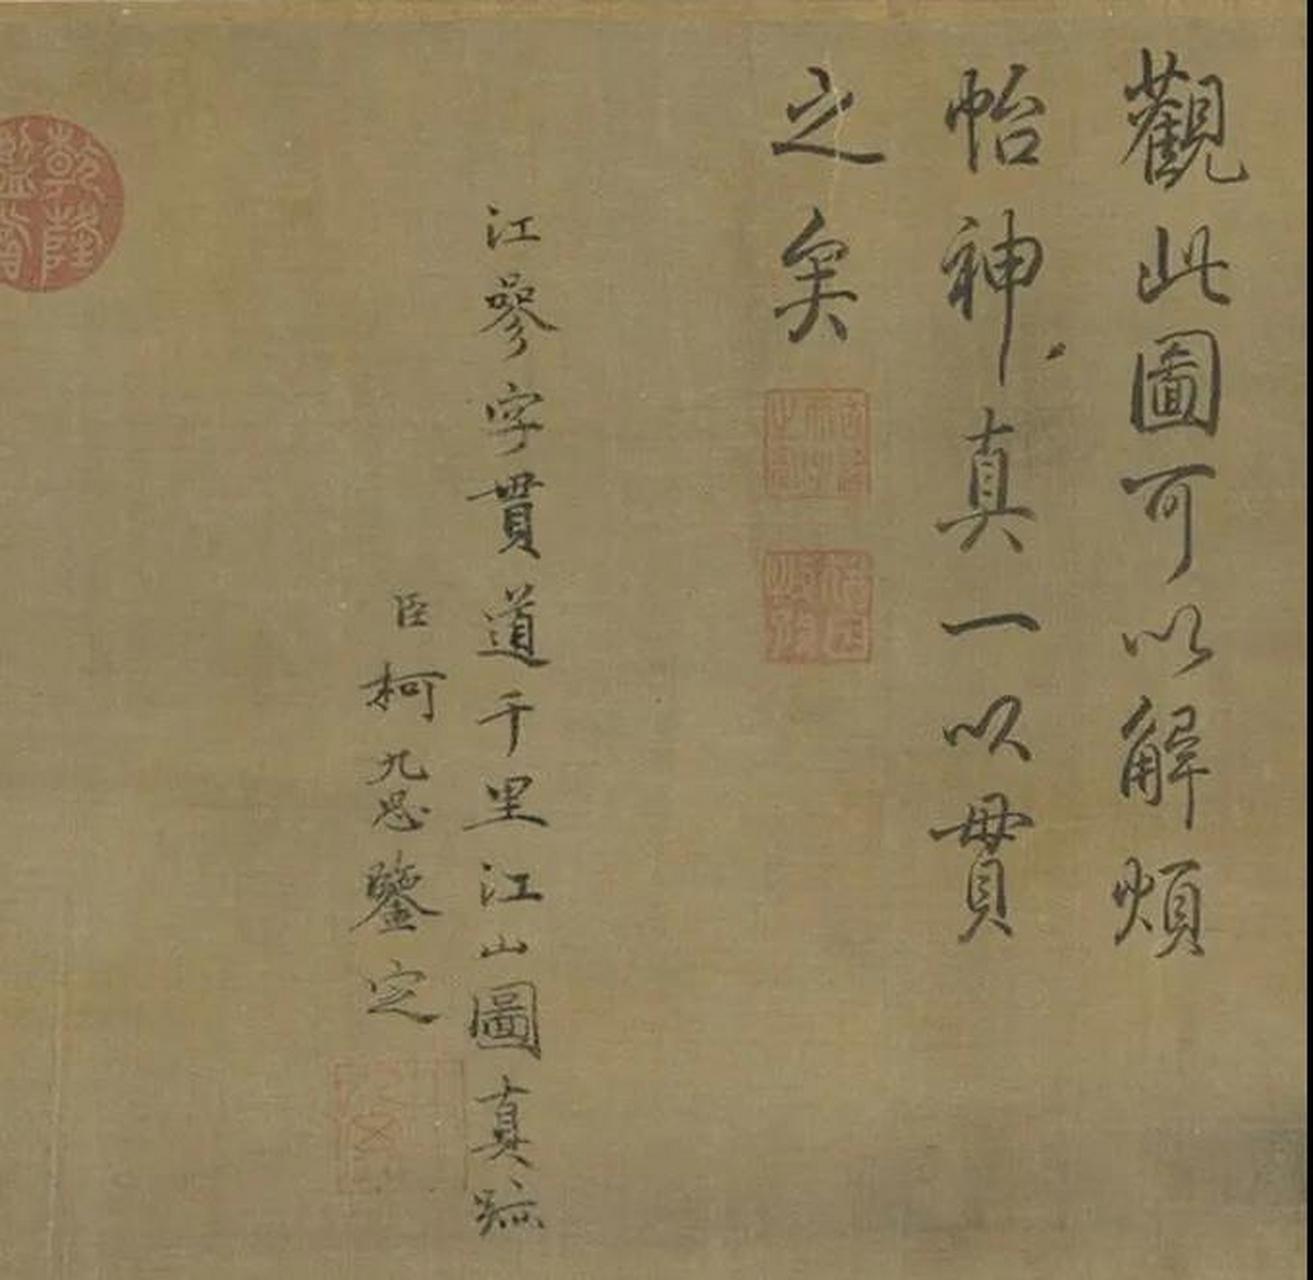 觀此圖可以解煩
怡神真一以貫
之矣
江參字貫道千里江山圖真跡
臣柯九思鑒定
乾隆